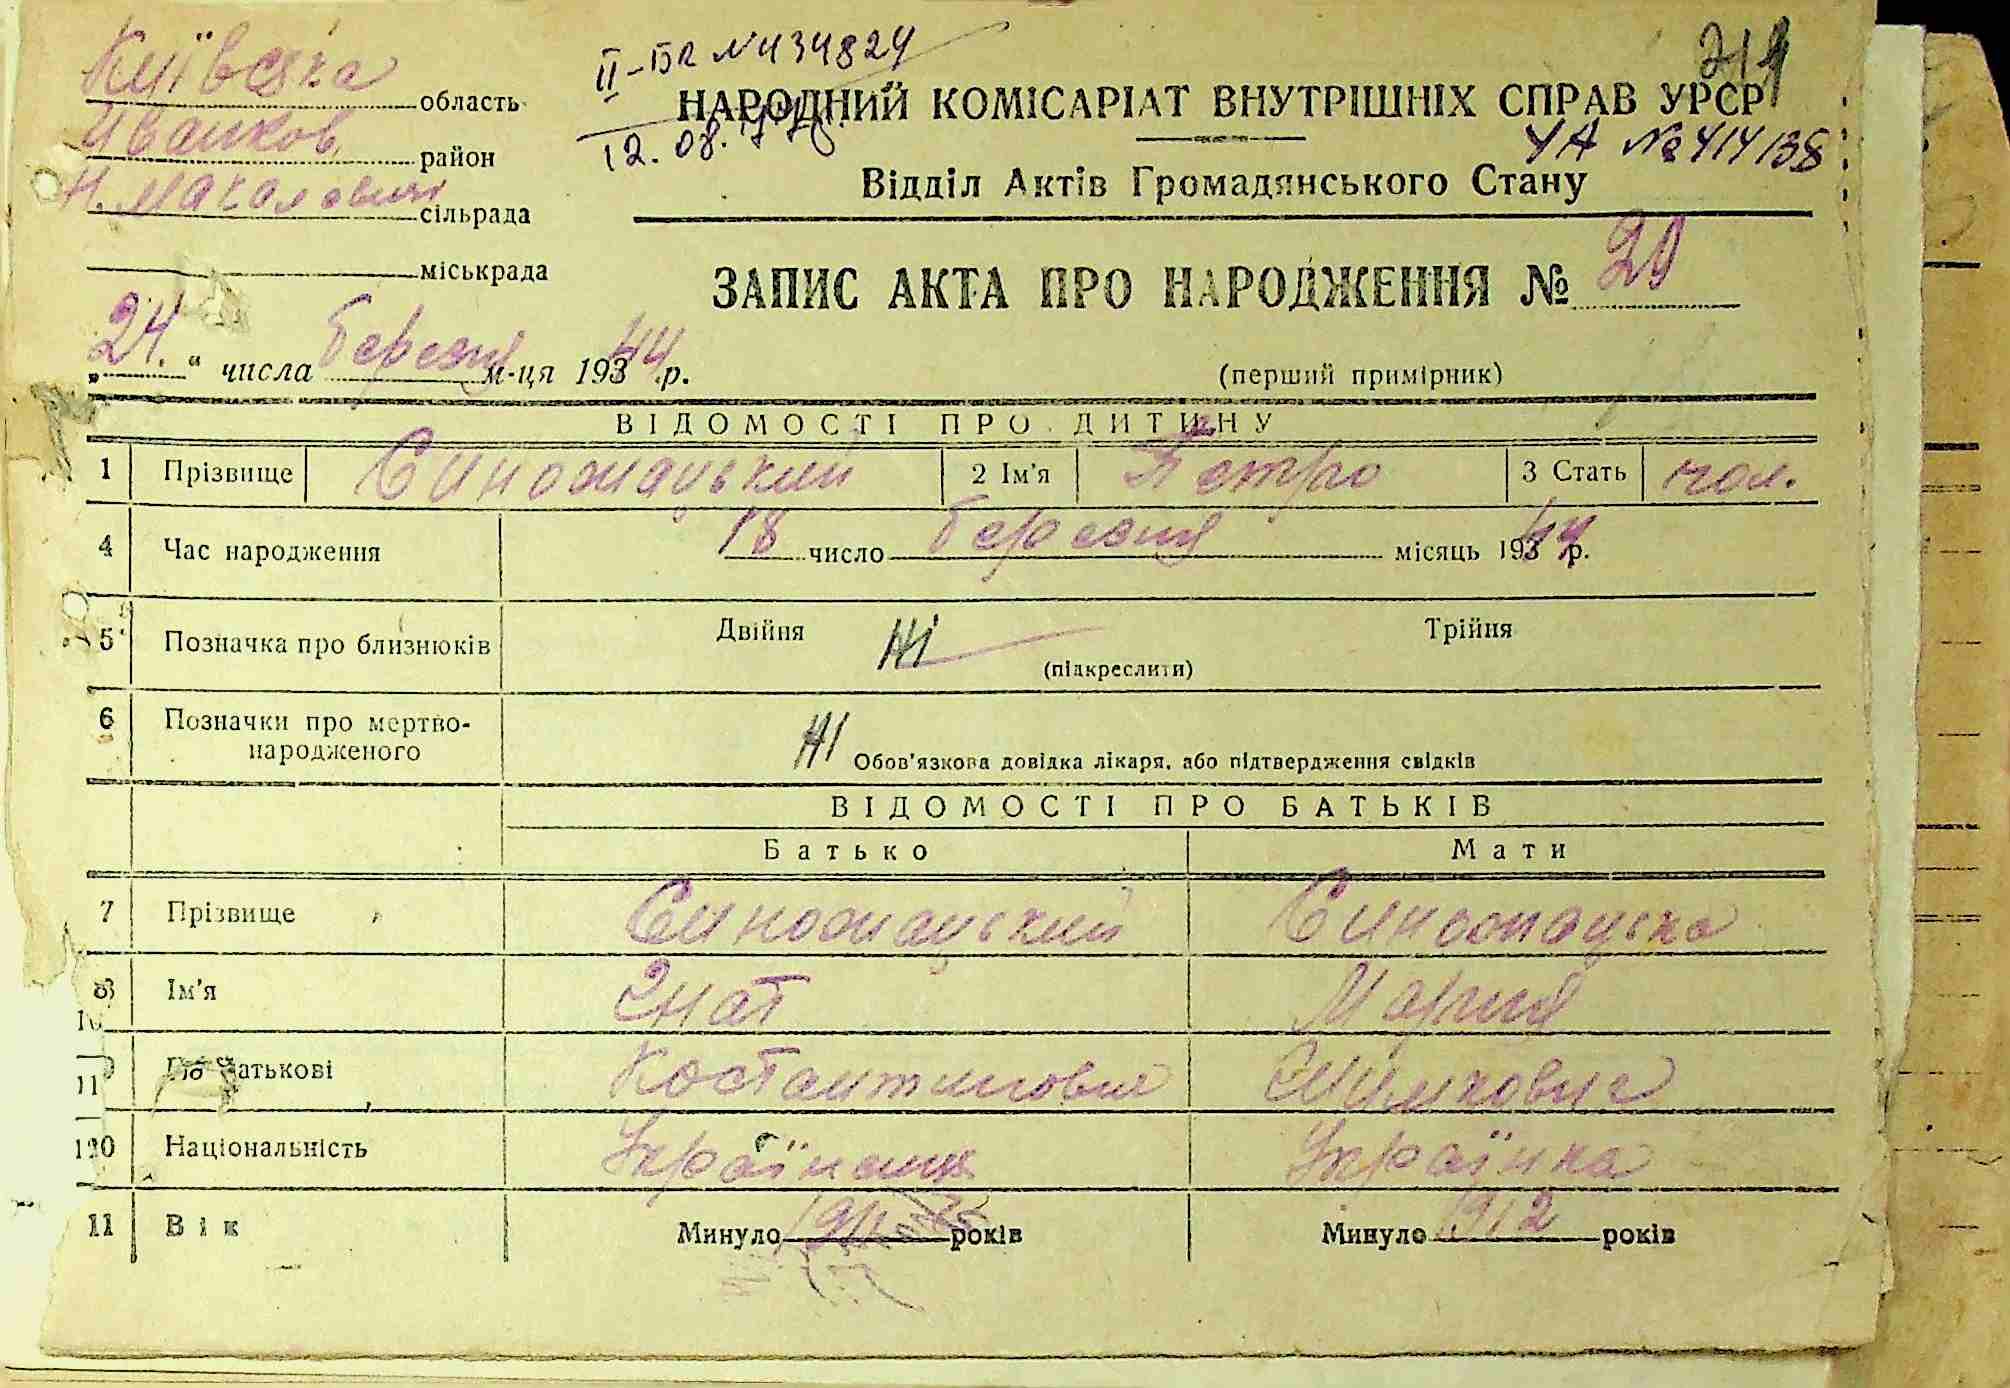 Київська область
Иванков район
Н. Макалевичі сільрада
міськрада
II-БК №434824
12.08.
НАРОДНИЙ КОМІСАРІАТ ВНУТРІШНІХ СПРАВ УРСР
УА №414138
Відділ Актів Громадянського Стану
ЗАПИС АКТА ПРО НАРОДЖЕННЯ № 20
„24." числа березня м-ця 1944 р.
(перший примірник)
ВІДОМОСТІ ПРО ДИТИНУ
1 Прізвище Синожацький 2 Ім'я Петро 3 Стать чол.
4 Час народження 18 число березня місяць 1944 р.
5 Позначка про близнюків Двійня Ні Трійня
(підкреслити)
6 Позначки про мертво-
народженого Ні Обов'язкова довідка лікаря, або підтвердження свідків
ВІДОМОСТІ ПРО БАТЬКІВ
Батько Мати
7 Прізвище Синожацький Синожацька
8 Ім'я Гнат Мария
9 По батькові Костантинович
10 Національність Українець Українка
11 Вік Минуло 1911 років Минуло 1912 років